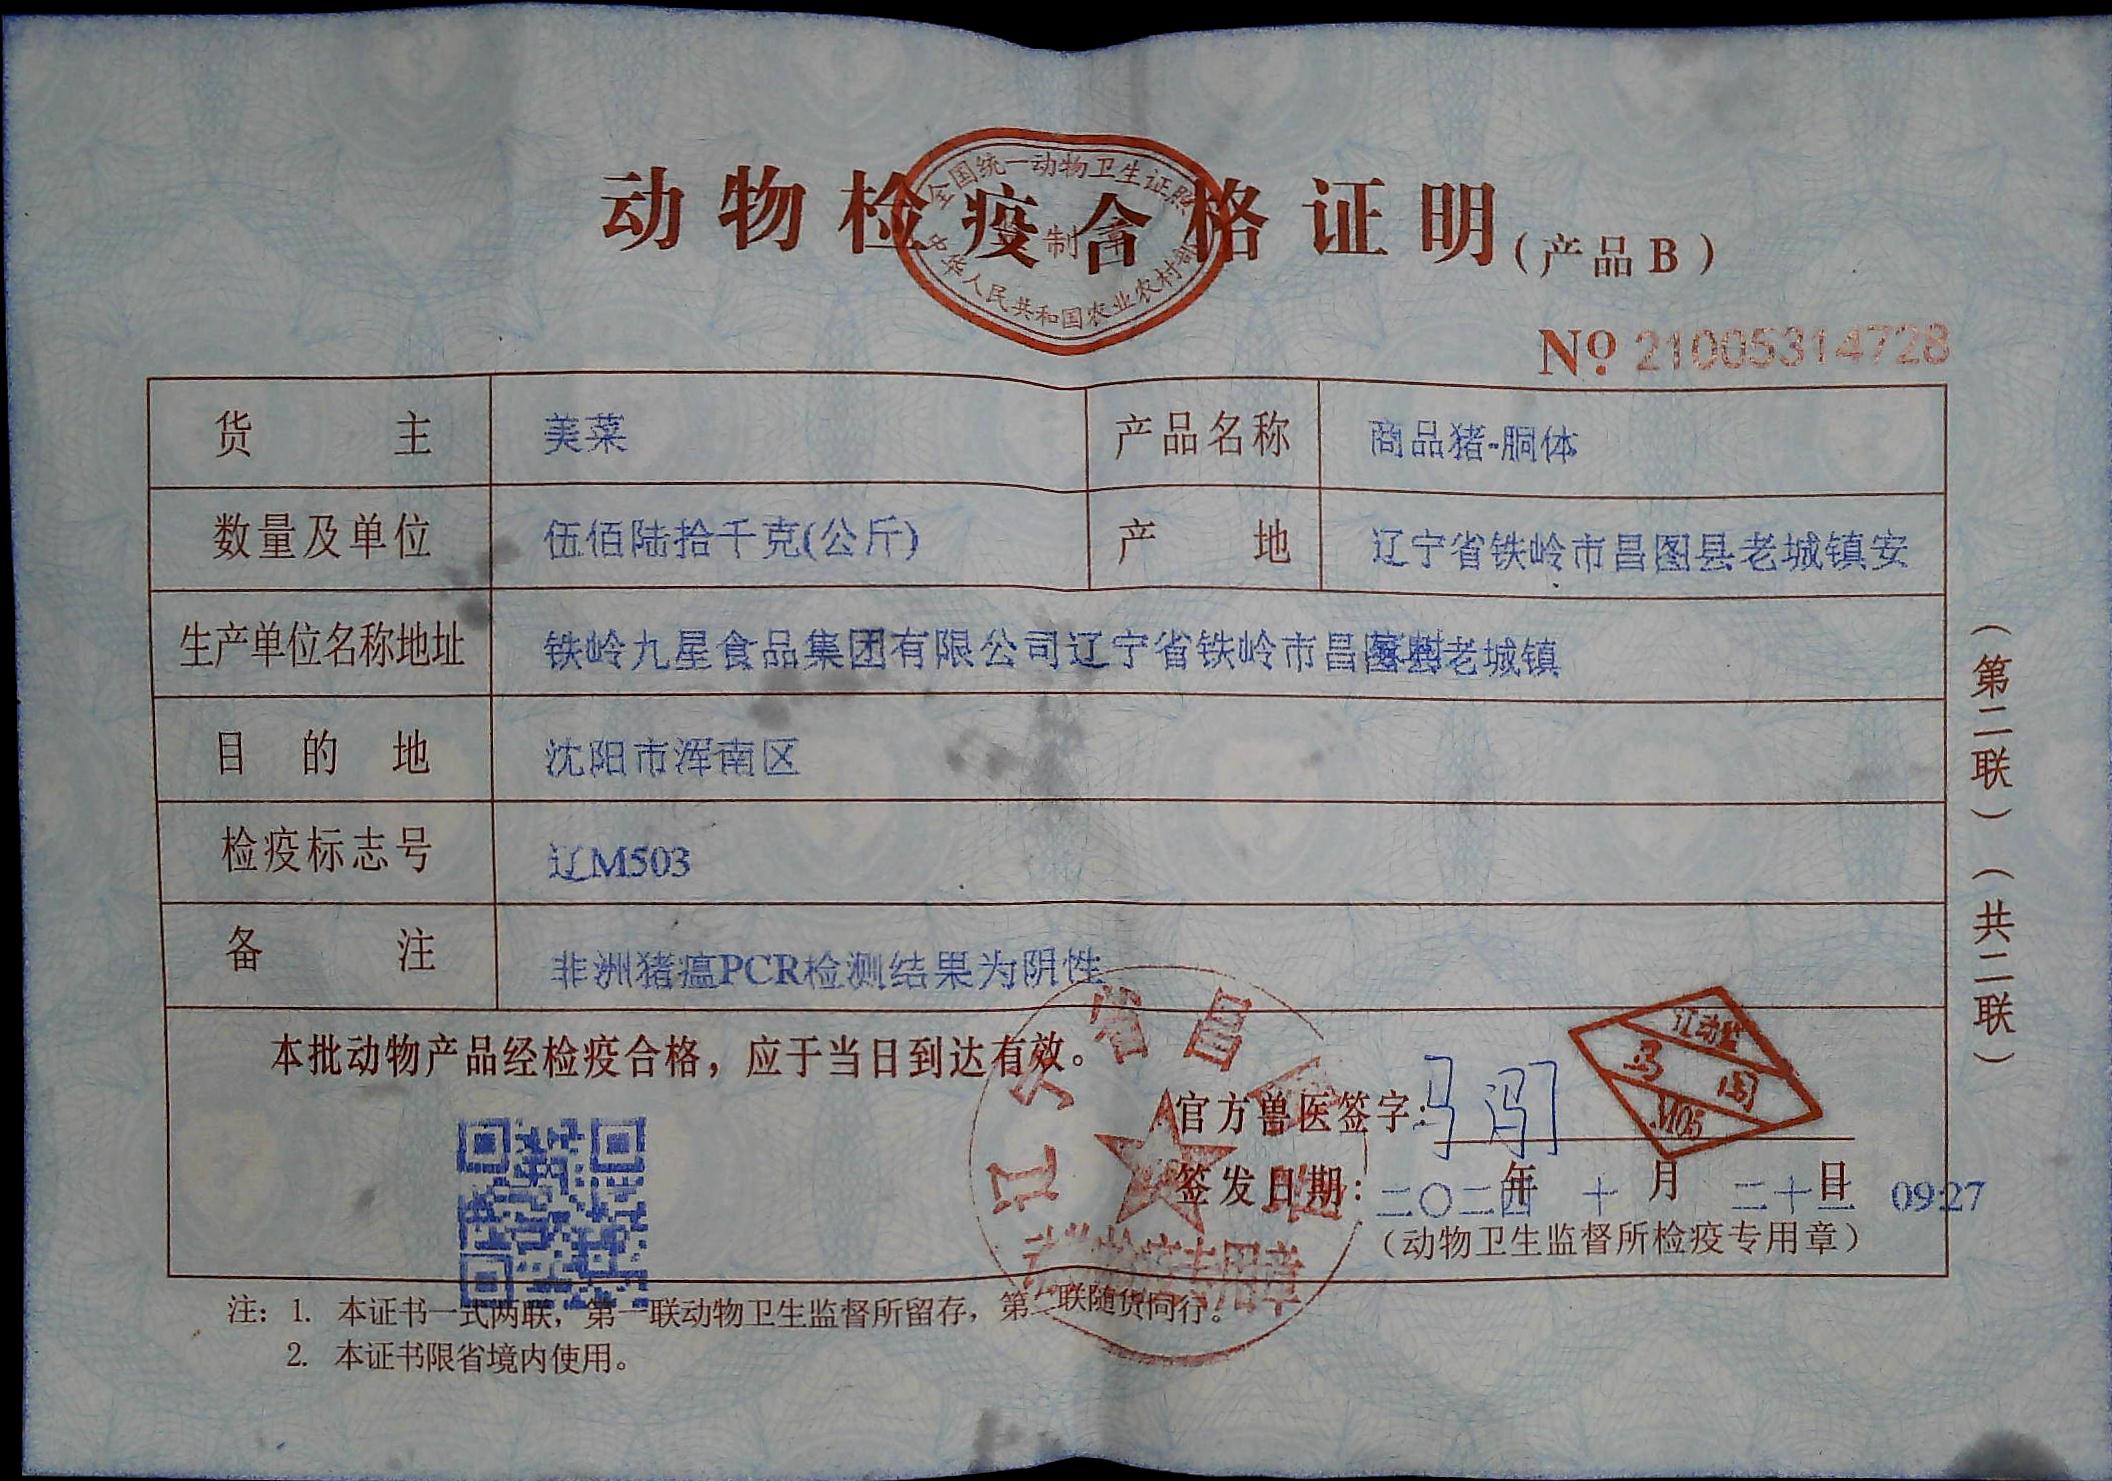 动物检疫合格证明（产品B）
全国统一动物卫生证照
制 章
中华人民共和国农业农村部
№ 21005314728
货主 美菜 产品名称 商品猪-胴体
数量及单位 伍佰陆拾千克(公斤) 产地 辽宁省铁岭市昌图县老城镇安
生产单位名称地址 铁岭九星食品集团有限公司辽宁省铁岭市昌图县老城镇
目的地 沈阳市浑南区
检疫标志号 辽M503
备注 非洲猪瘟PCR检测结果为阴性
本批动物产品经检疫合格，应于当日到达有效。
官方兽医签字：马闯
辽动监
马闯
M05
签发日期：二〇二四年 十月 二十二日 0927
（动物卫生监督所检疫专用章）
辽宁省昌图
检疫专用章
注：1. 本证书一式两联，第一联动物卫生监督所留存，第二联随货同行。
2. 本证书限省境内使用。
（第二联）（共二联）